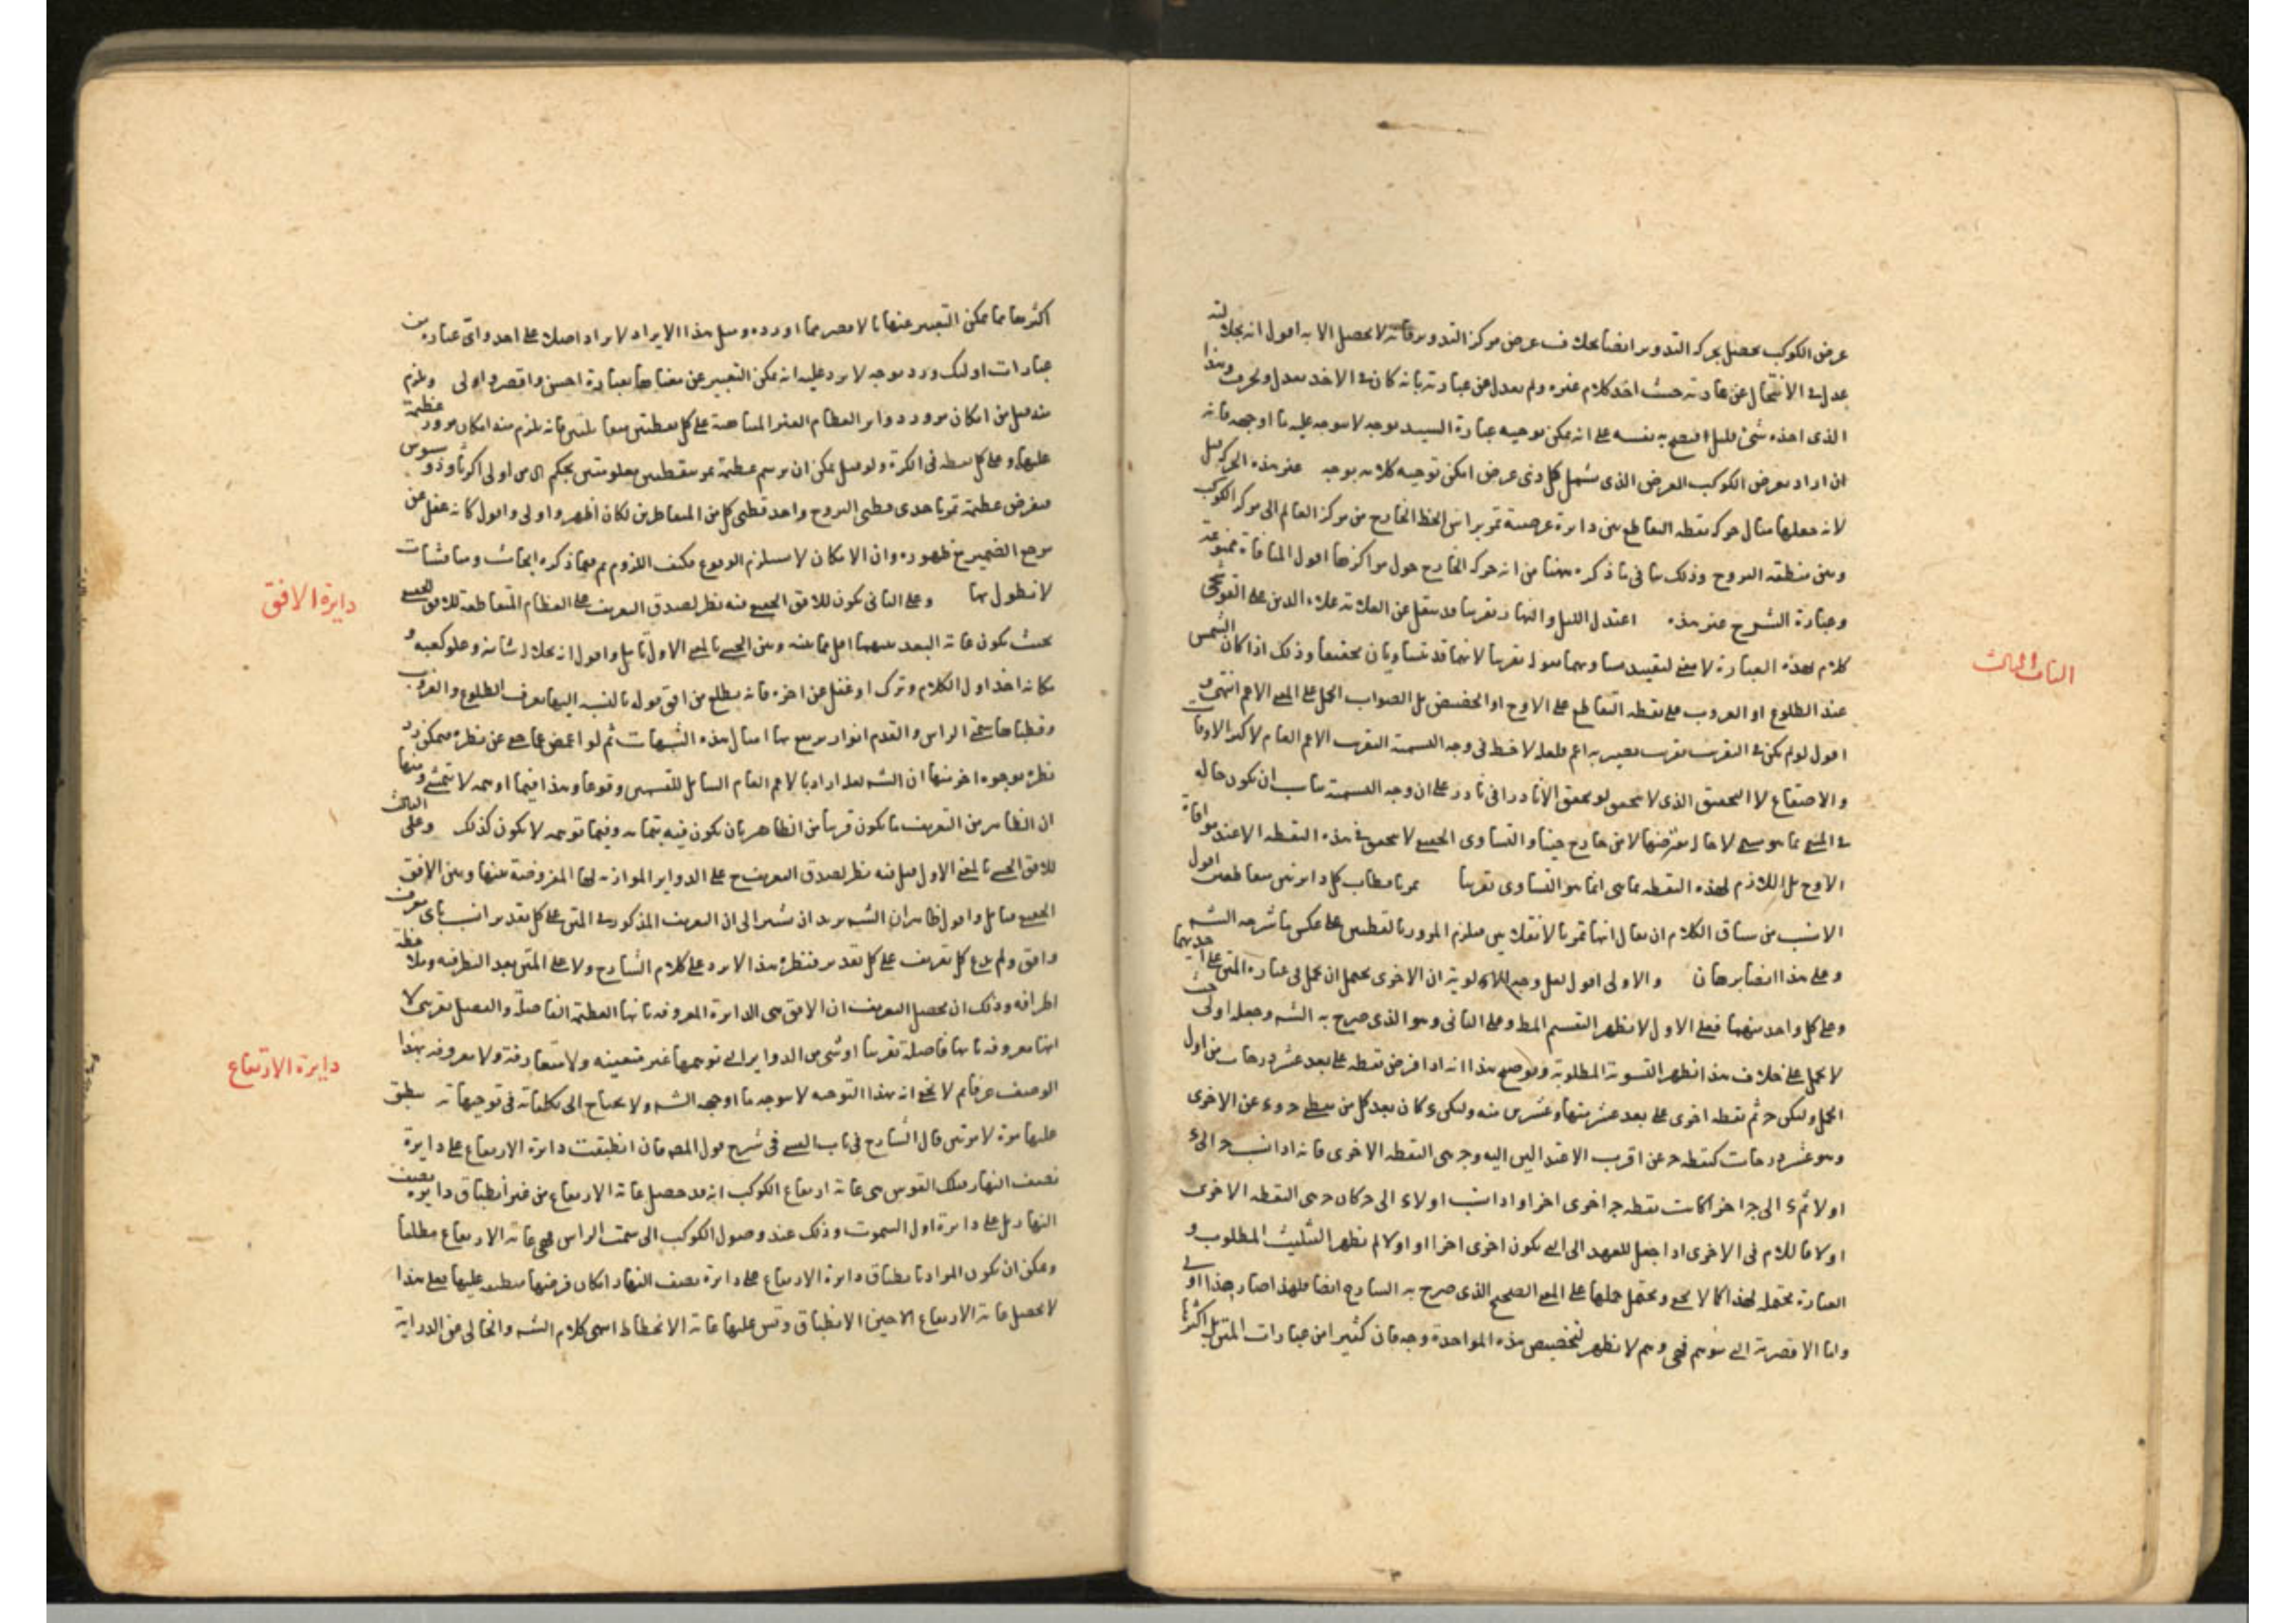 عرض الكوكب يحصل بحركه التدوير ايضا بخلاف عرض مركز التدوير فانه لا يحصل الا به اقول انه بجلالته
عدل في الانتحال عن عادته حيث اخذ كلام غيره ولم يعدل عن عبارته بانه كان في الاخذ يعدل ويحرف وهذا
الذي اخذه شئ قليل على انه يمكن توجيه عبارة السيد بوجه لا يتوجه عليه ما اوجهه فانه
ان اراد بعرض الكوكب العرض الذي يشمل كل ذي عرض امكن توجيه كلامه بوجه غير هذه الحركه قيل
لانه جعلها مثال حركه نقطه التقاطع بين دايرة عرضية تمر براس الخط الخارج من مركز العالم الى مركز الكوكب
وبين منطقه البروج وذلك ينافي ما ذكره ههنا من انه حركه الخارج حول مراكزها اقول المنافاة ممنوعة
وعبارة الشرح غير هذه اعتدل الليل والنهار تقريبا قد ينقل عن العلامة علاء الدين علي القوشجي
كلام لهذه العبارة لا معنى لتقييد تساويهما بقوله تقريبا لانهما قد تتساويان تحقيقا وذلك اذا كان الشمس
عند الطلوع او الغروب على نقطه التقاطع على الاوج او الحضيض بل الصواب الحمل على المعنى الاعم انتهى و
اقول لو لم يكن في التقريب تقريب يصير به اعم فلعله لاحظ في وجه التسمية التقريب الاعم العام لاكثر الاوقات
والاصقاع لا التحقيق الذي لا يتحقق لو يتحقق الا نادرا في نادر على ان وجه التسمية يناسب ان يكون حاله
الاوج بل اللازم لهذه النقطه بما هي انما هو التساوي تقريبا تمر باقطاب كل دايرتين متقاطعتين اقول
الانسب من سياق الكلام ان يقال انها تمر بالانقلابين فيلزم المرور بالقطبين على عكس ما شرحه الشه
وعلى هذا ايضا برهان والاولى اقول لعل وجه الاولوية ان الاخرى يحتمل ان يحمل في عبارة المتن على احديهما
وعلى كل واحد منهما فعلى الاول لا يظهر التقسيم المط وعلى الثاني وهو الذي صرح به الشه وجعله اولى حيث
لا يحمل على خلاف هذا يظهر التسوية المطلوبة وتوضيح هذا انه اذا فرض نقطه على بعد عشر درجات من اول
الحمل وليكن ح ثم نقطه اخرى على بعد عشر منها وعشرين منه وليكن ء كان بعد كل من نقطتي ح وء عن الاخرى
وهو عشر درجات كنقطه ح عن اقرب الاعتدالين اليه وح هي النقطه الاخرى فانه اذا نسب ح الى ء
اولا ثم ء الى ح اخرا كانت نقطه ح اخرى اخرا واذا نسب اولا ء الى ح كان ح هي النقطه الاخرى
اولا فاللام في الاخرى اذا جعل للعهد الى التي يكون اخرى اخرا او اولا لم يظهر التثليث المطلوب و
العبارة محتمله لهذا كما لا يخفى ويحتمل حملها على المعنى الصحيح الذي صرح به الشارح ايضا فلهذا صار هذا اولى
واما الاقصرية التي توهم فهي وهم لا يظهر لتخصيص هذه المواخذة وجه فان كثيرا من عبارات المتن بل اكثرها
الباب الثالث
اكثرها مما يمكن التعبير عنها بالاقصر مما اورده ومثل هذا الايراد لا يراد اصلا على احد واي عبارة من
عبارات اولئك ورد بوجه لا يرد عليه انه يمكن التعبير عن معناها بعبارة احسن واقصر واولى ويلزم
منه قيل من امكان مرور دواير العظام الغير المتناهية على كل نقطتين متقابلتين فانه يلزم منه امكان مرور عظيمة
عليها وعلى كل نقطه في الكرة ولو قيل يمكن ان يرسم عظيمة تمر بنقطتين معلومتين بحكم اولى اكر ثاوذوسيوس
فيفرض عظيمة تمر باحدى قطبي البروج واحد قطبي كل من المتقاطرين لكان اظهر واولى واقول كانه غفل عن
مرجع الضمير مع ظهوره وان الامكان لا يستلزم الوقوع فكيف اللزوم ثم فيما ذكره ابحاث ومناقشات
لا نطول بها وعلى الثاني يكون للافق الحقيقي فيه نظر لصدق التعريف على العظام المتقاطعة للافق الحقيقي
بحيث يكون غاية البعد بينهما اقل مما بينه وبين الحسي بالمعنى الاول تامل واقول انه بجلال شانه وعلو كعبه و
مكانه اخذ اول الكلام وترك او غفل عن اخره فانه يطلع من افق قوله بالنسبه اليها يعرف الطلوع والغروب
وقطباها سمتي الراس والقدم انوار يرتفع بها امثال هذه الشبهات ثم لو اغمض عما صح عن نظره فيمكن رد
نظره بوجوه اخر منها ان الشه لعله اراد بالاعم العام الشامل للقسمين وقوعا وهذا فيما اوهمه لا يتمشى ومنها
ان الظاهر من التعريف ما يكون قريبا من الظاهر بان يكون فيه بتمامه وفيما توهمه لا يكون كذلك وعلى الثالث
للافق الحسي بالمعنى الاول قيل فيه نظر لصدق التعريف ح على الدواير الموازية لها المفروضة عنها وبين الافق
الحقيقي تامل واقول ظاهر ان الشه يريد ان يشير الى ان التعريف المذكور في المتن على كل تقدير انسب باي تعريف
وافق ولم يدع كل تعريف على كل تقدير فنظره هذا لا يرد على كلام الشارح ولا على المتن بعد النظر فيه وملاحظة
اطرافه وذلك ان محصل التعريف ان الافق هي الدايرة المعروفه بانها العظيمة الفاصلة والفصل تقريبي لا
انها معروفه بانها فاصلة تقريبا او شئ من الدواير التي توهمها غير متعينه ولا متعارفة ولا معروفه بهذا
الوصف عرفا ثم لا يخفى انه بهذا التوجيه لا يتوجه ما اوجهه الشه ولا يحتاج الى تكلفاته في توجيهاته ينطبق
عليها مرة لا مرتين قال الشارح في شرح قول المصه فان انطبقت دايرة الارتفاع على دايرة
نصف النهار فتلك القوس هي غاية ارتفاع الكوكب انه قد حصل غاية الارتفاع من غير انطباق دايرة نصف
النهار بل على دايرة اول السموت وذلك عند وصول الكوكب الى سمت الراس فهي غاية الارتفاع مطلقا
ويمكن ان يكون المراد بانطباق دايرة الارتفاع على دايرة نصف النهار امكان فرضها منطبقه عليها فعلى هذا
لا يحصل غاية الارتفاع الا حين الانطباق وقس عليها غاية الانحطاط انتهى كلام الشه والخالي عن الدراية
دايرة الافق
دايرة الارتفاع